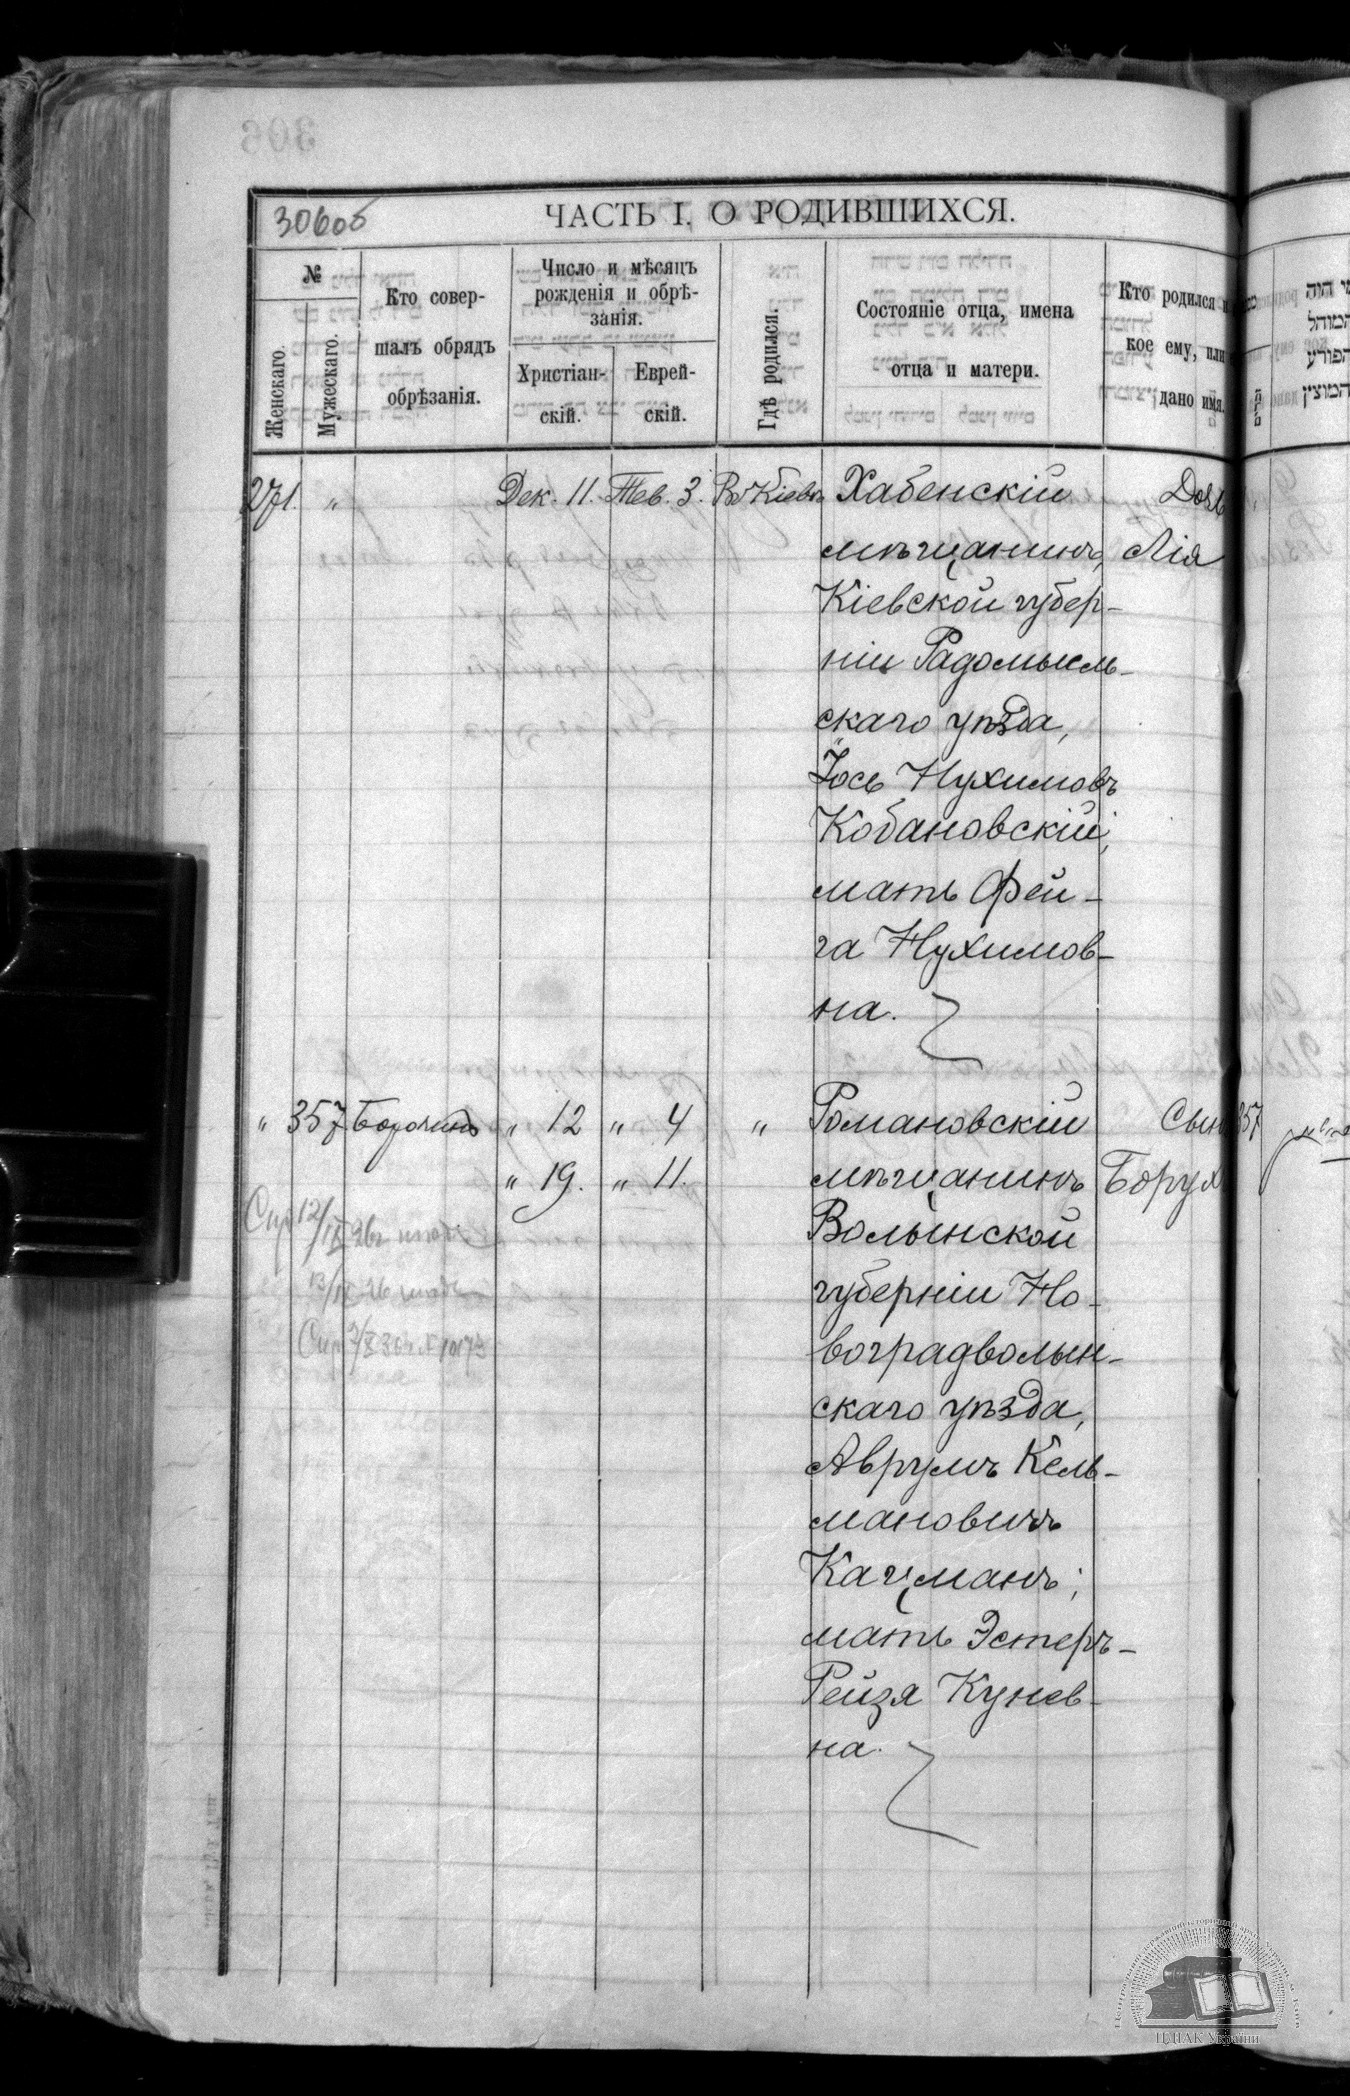 306об
ЧАСТЬ I. О РОДИВШИХСЯ.
№
Женскаго.
Мужескаго.
Кто совер-
шалъ обрядъ
обрѣзанія.
Число и мѣсяцъ
рожденія и обрѣ-
занія.
Христіан-
скій.
Еврей-
скій.
Гдѣ родился.
Состояніе отца, имена
отца и матери.
Кто родился и
кое ему, или
дано имя.
271. " Дек. 11. Тев. 3. Въ Кіевѣ Хабенскій Дочь
мѣщанинъ, Лія
Кіевской губер-
ніи Радомысль-
скаго уѣзда,
Іось Нухимовъ
Кобановскій;
мать Фей-
га Нухимов-
на.
" 357 " 12 " 4 " Романовскій Сын 357
" 19. " 11. мѣщанинъ Борух
Волынской
губерніи Но-
воградволын-
скаго уѣзда,
Аврумъ Кель-
мановичъ
Кацманъ;
мать Эстеръ-
Рейзя Кунев-
на.
ЦДІАК України